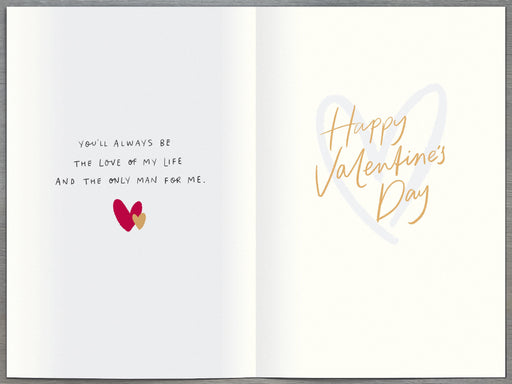 YOU'LL ALWAYS BE
THE LOVE OF MY LIFE
AND THE ONLY MAN FOR ME.
Happy
Valentine's
Day